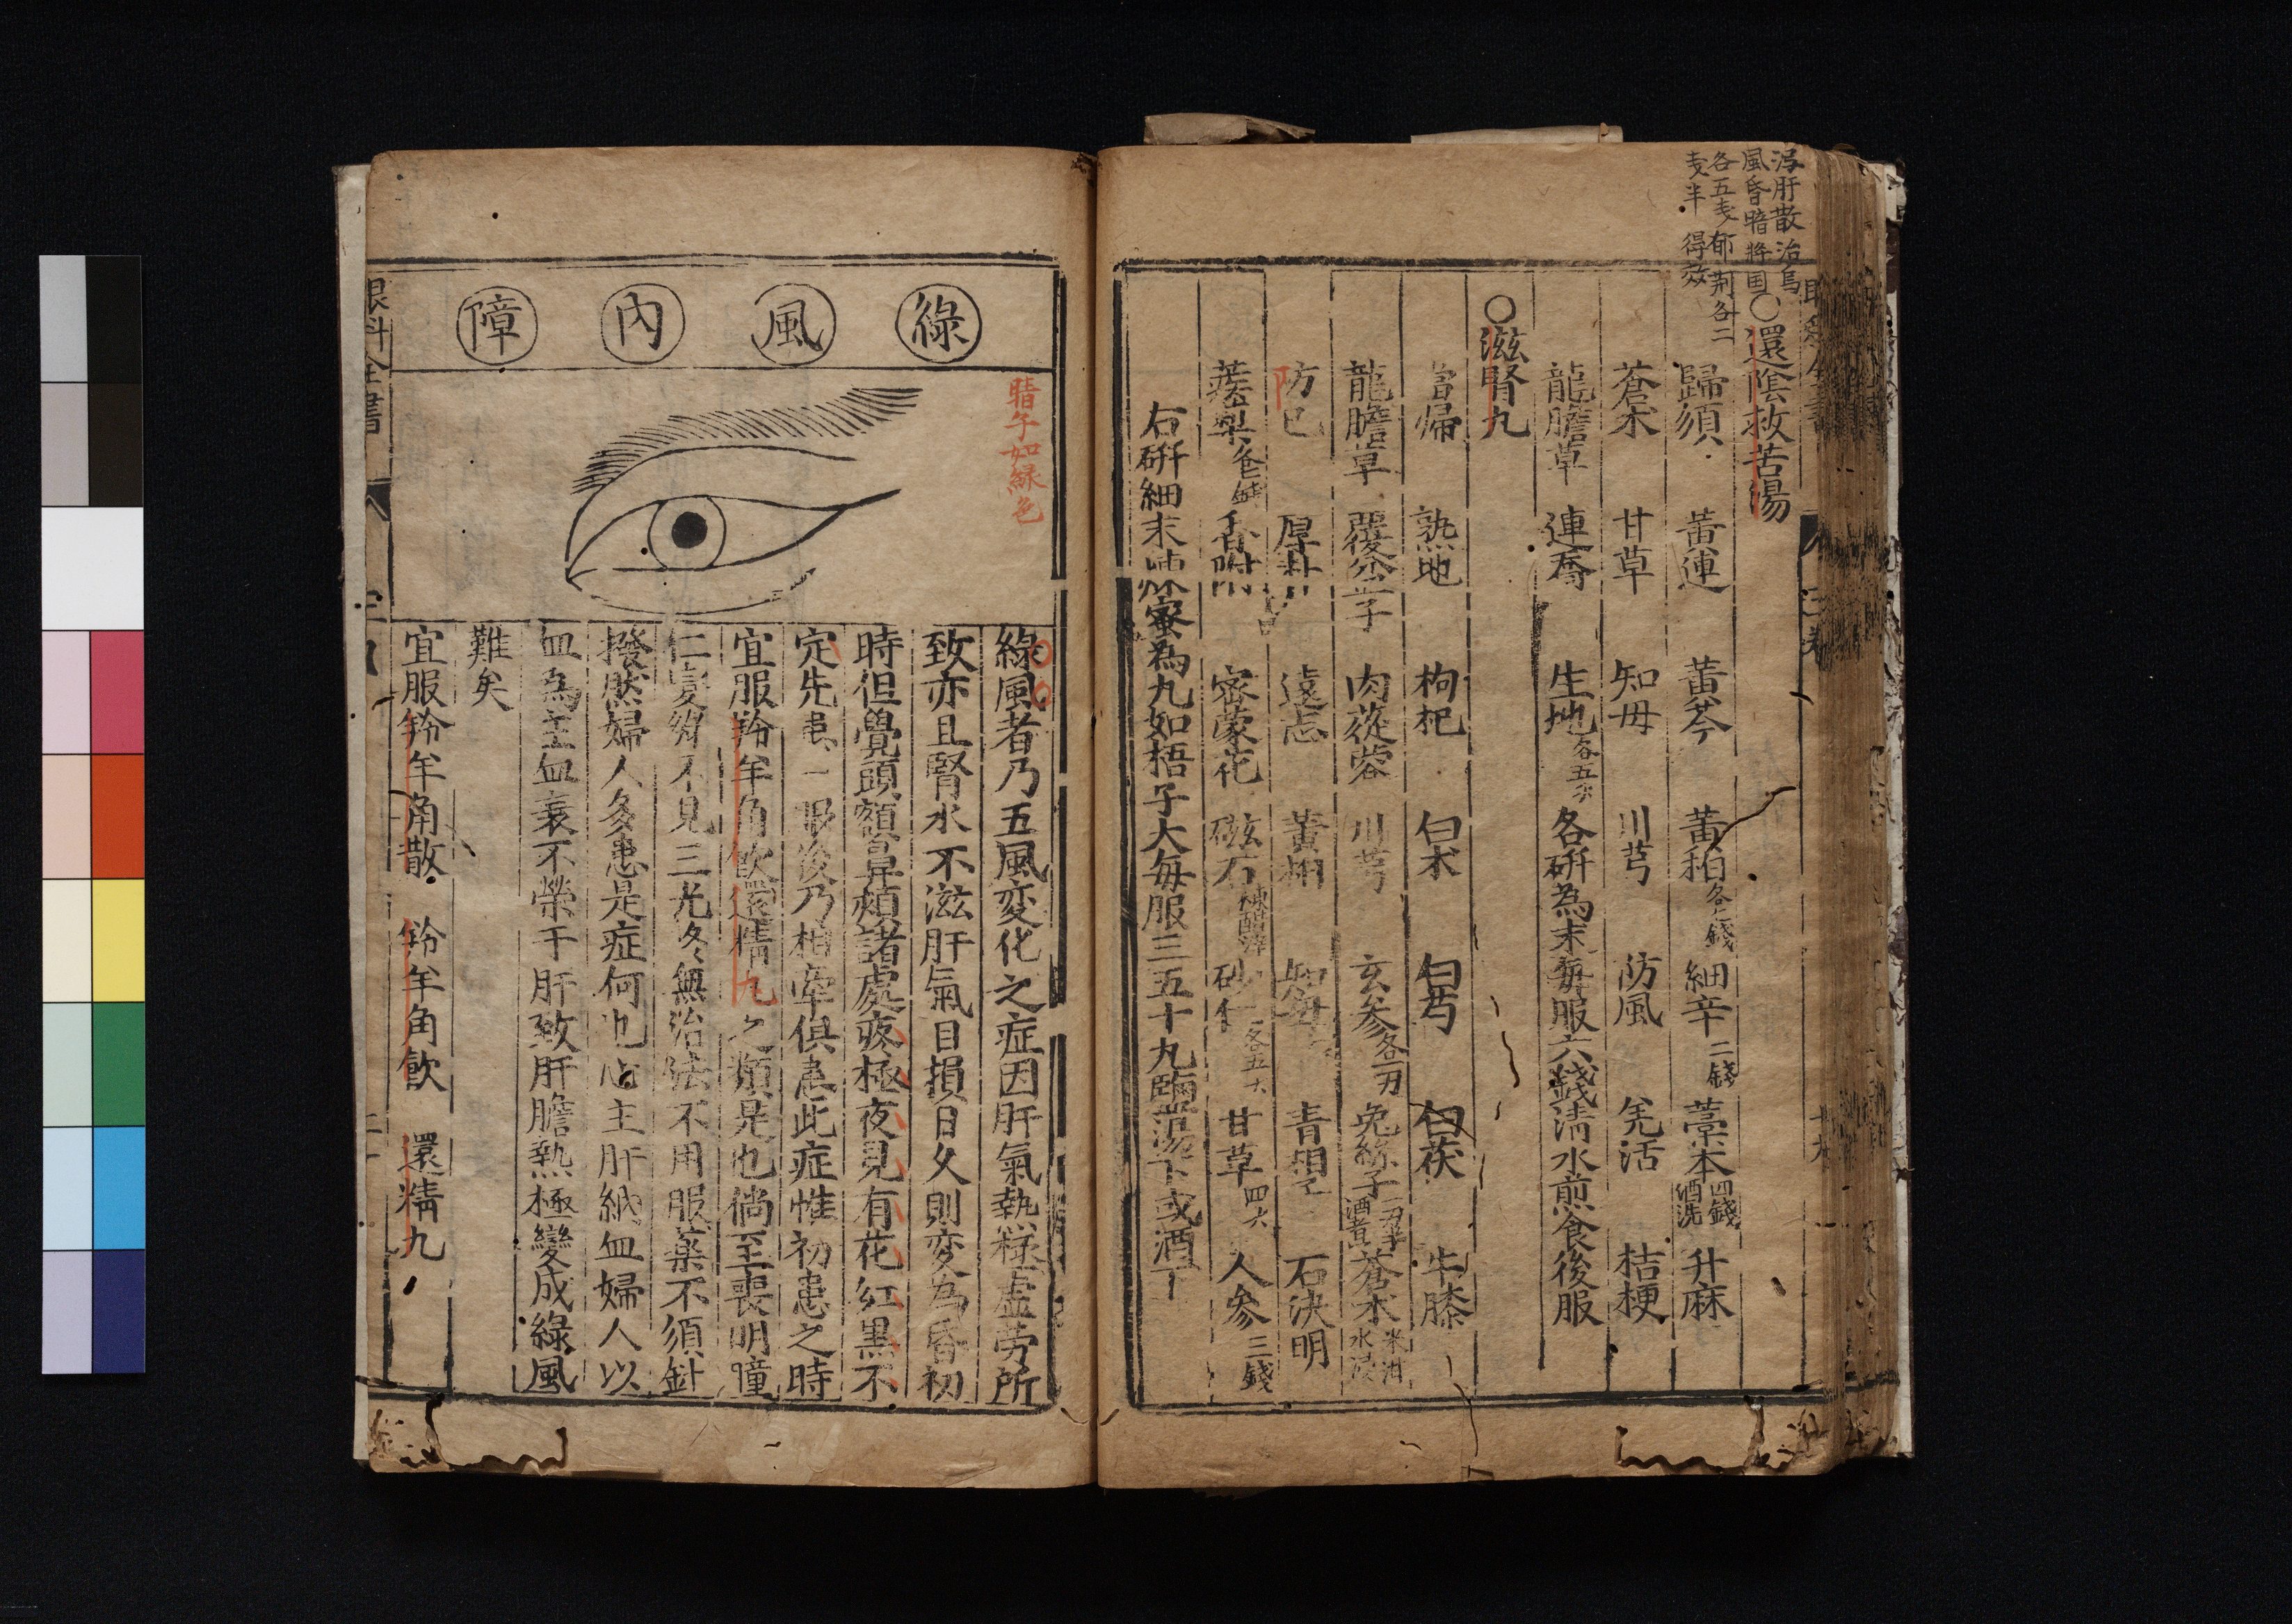 泻肝散治烏
風昏暗將
各五戋郁荆各二
戋半 得效
○還陰救苦湯
歸須 黃連 黃芩 黃柏 細辛二錢 藁本四錢酒洗 升麻
蒼朮 甘草 知母 川芎 防風 羌活 桔梗
龍膽草 連喬 生地各五 各硏為末每服六錢淸水煎食後服
○滋腎丸
當歸 熟地 枸杞 白朮 白芍 白茯 牛膝
龍膽草 覆盆子 肉蓯蓉 川芎 玄參各一刄 兔絲子一刄半酒煮 蒼朮米泔水浸
防已 厚朴 遠志 黃柏 知母 青相子 石決明
蒺梨 香附 密蒙花 磁石 砂仁各五 甘草四 人參三錢
右硏細末 蜜為丸如梧子大每服三五十丸鹽湯下或酒下
綠風內障
睛子如綠色
綠風者乃五風変化之症因肝氣熱糕虛劳所
致亦且腎水不滋肝氣目損日久則変為昏初
時但覺頭額鼻頰諸處疼極夜見有花紅黑不
定先患一眼後乃相牽俱患此症惟初患之時
宜服羚羊角飲還精丸之類是也倘至喪明瞳
仁変 不見三光冬無治法不用服薬不須針
撥然婦人多患是症何也心主肝納血婦人以
血為主血衰不榮于肝致肝膽熱極變成綠風
難矣
宜服羚羊角散 羚羊角飲 還精丸
眼科全書